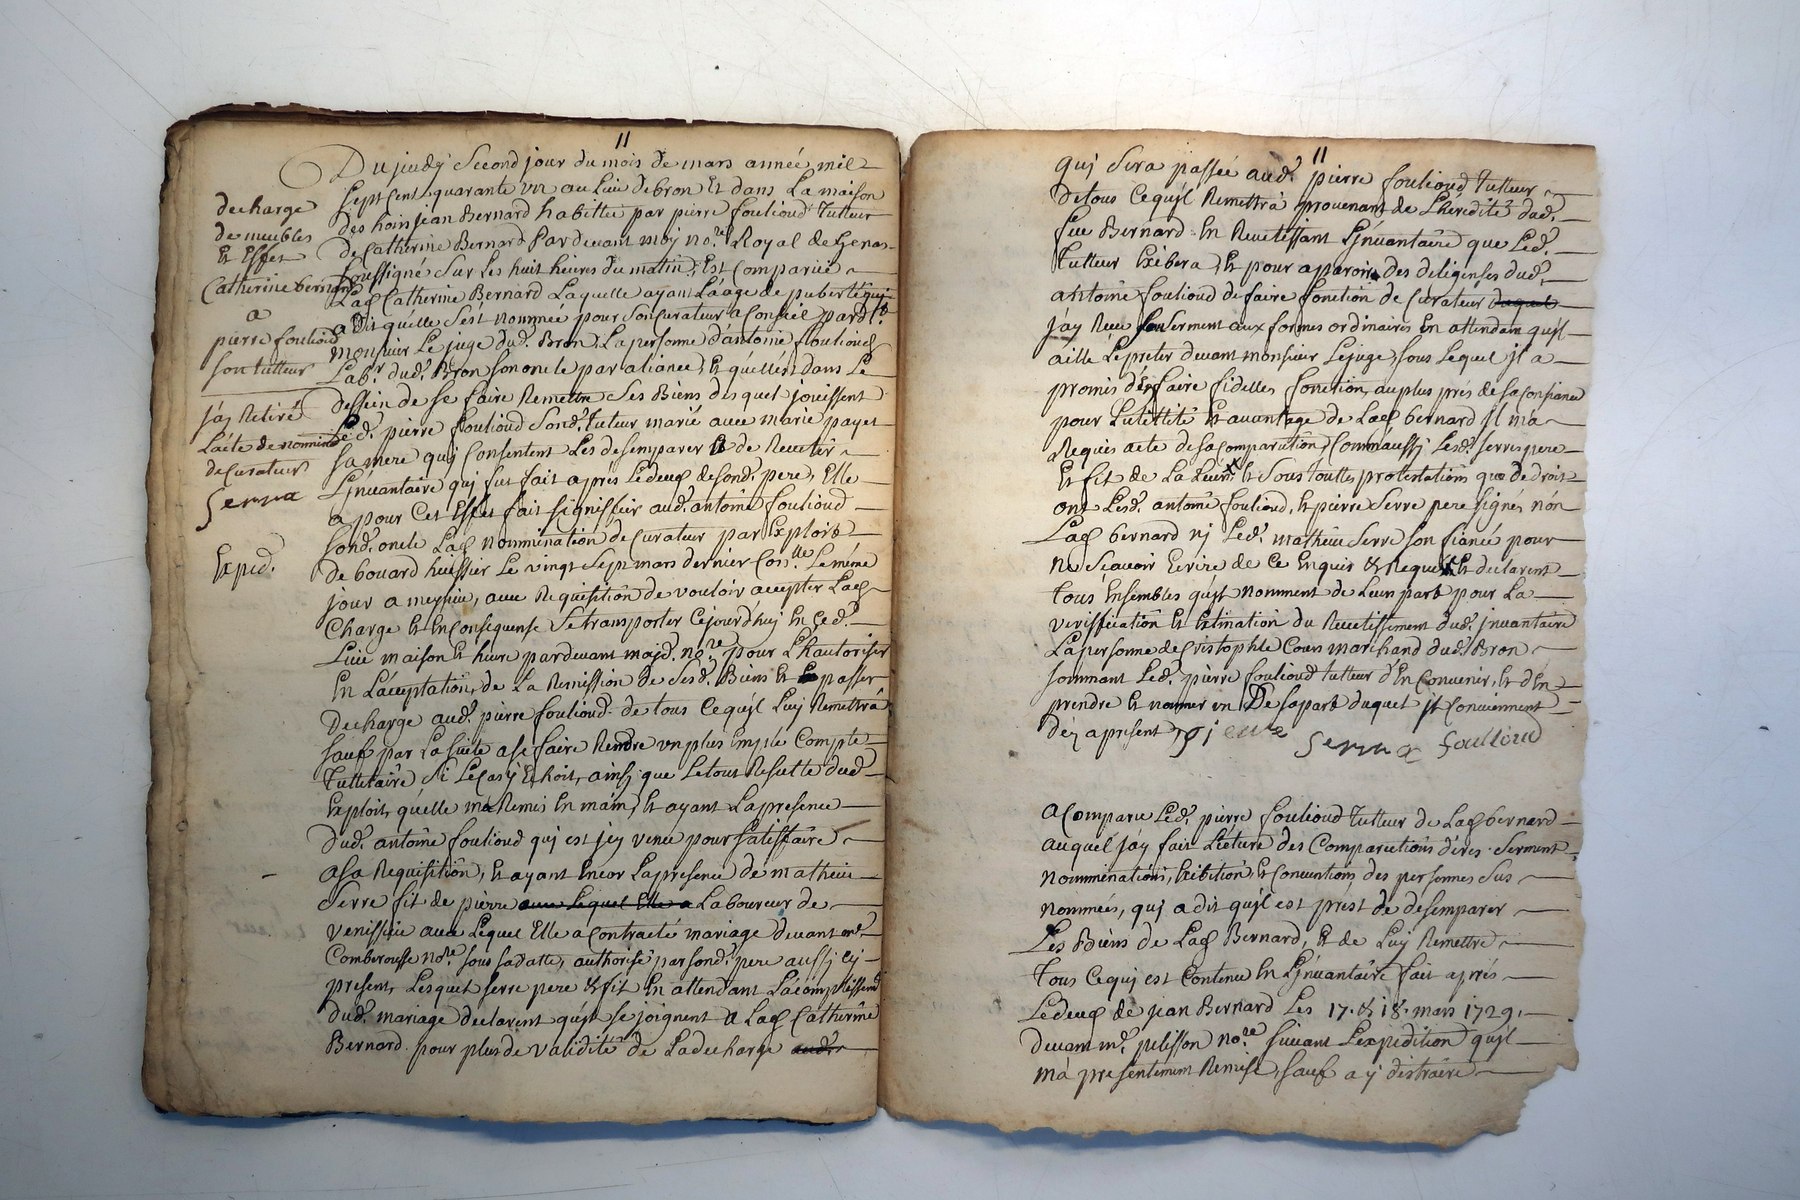 11
Du judy second jour du mois de mars année mil
sept cent quarante un au lieu de bron et dans la maison
des hoirs jean Bernard habittée par pierre foulioud tutteur
de Catherine Bernard pardevant moy no.re Royal de Genas
soussigné sur les huit heures du matin, est comparüe
Laq Catherine Bernard laquelle ayant l'aage de puberté qui
a dit qu'elle s'est nommée pour son curateur a conseil pard.t
monsieur le juge dud. Bron, la personne d'antoine foulioud
lab.r dud. Bron son oncle par aliance, et qu'ellest dans le
dessein de se faire Remettre ses Biens desquel jouissent
led. pierre foulioud sond. tuteur marié avec marie payet
sa mere quj consentent les desemparer et de Revetir
l'jnvantaire quj fut fait après le deceq de sond. pere, Elle
a pour cet effet fait signiffier aud. antoine foulioud
sond. oncle laq nommination de curateur par exploit
de bouard huissier le vingt sept mars dernier con.lle le méme
jour a meysieu, avec Requisition de vouloir accepter laq
charge et en conséquense se transporter cejourd'huy en ced.
lieu maison et heure pardevant moyd. no.re pour l'hautoriser
en l'acceptation, de la Remission de sesd. Biens et passer
decharge aud. pierre foulioud de tous ce qu'il luy Remettrà
sauf par la suite a se faire Rendre un plus emple compte
tuttelaire si le cas y echoit, ainsy que le tout Resulte dud.
exploit, qu'elle ma Remis en main, et ayant la presence
dud. antoine foulioud quj est jcy venu pour satisffaire
a sa Requisition, et ayant encor la presence de mathieu
serre fil de pierre avec lequel elle a laboureur de
venissieu avec lequel elle a contracté mariage devant m.e
Comberousse no.re sous sa datte, authorisé par sond. pere aussj cy
present, lesquel serre pere & fil en attendant l'acomplissem.t
dud. mariage declarent qu'jl se joignent a laq Catherine
Bernard pour plus de validité de la decharge aud.
decharge
de meubles
et Effet
Catherine bernard
a
pierre foulioud
son tutteur
j'ay Retiré
l'acte de nomin.on
de curateur
Serra
Exped.
11
quj sera passée aud. pierre foulioud tutteur
de tous ce qu'jl Remettrà provenant de l'heredité dud.
feu Bernard en Revetissant l'jnvantaire que led.
tutteur exibera, et pour aparoir des deligenses dud.
antoine foulioud de faire fonction de curateur duquel
j'ay Receu son serment aux formes ordinaires en attendant qu'jl
aille le preter devant monsieur le juge, sous lequel jl a
promis d'en faire fidelles fonction, au plus prés de sa consiance
pour l'utillité et avantage de laq bernard jl m'a
Requis acte de sa comparution, comm'aussy lesd. serres pere
et fil de la leur et sous touttes protestations que de droit
ont lesd. antoine foulioud, et pierre serre pere signés nón
laq bernard nj led. mathieu serre son fiancé pour
ne sçavoir ecrire de ce enquis & Requis et declarent
tous ensembles qu'jl nomment de leur part pour la
veriffication et estimation du Revetissement dud. jnvantaire
la personne de Cristophle Cours marchand dud. Bron
sommant led. pierre foulioud tutteur d'en convenir, et d'en
prendre et nomer un de sa part duquel jl conviennent
déz a present, pj erre Serra foulioud
a comparu led. pierre foulioud tutteur de laq bernard
auquel j'ay fait lecture des comparutions dires serment
nomminations, exibition, et conventions des personnes sus
nommées, quj a dit qu'jl est prest de desemparer
les Biens de laq Bernard, et de luy Remettre
tous ce quj est contenu en l'jnvantaire fait après
le deceq de jean Bernard les 17. & 18. mars 1729.
devant m.e pelisson no.re suivant l'expedition qu'jl
m'a presentement Remise, sauf a y distraire